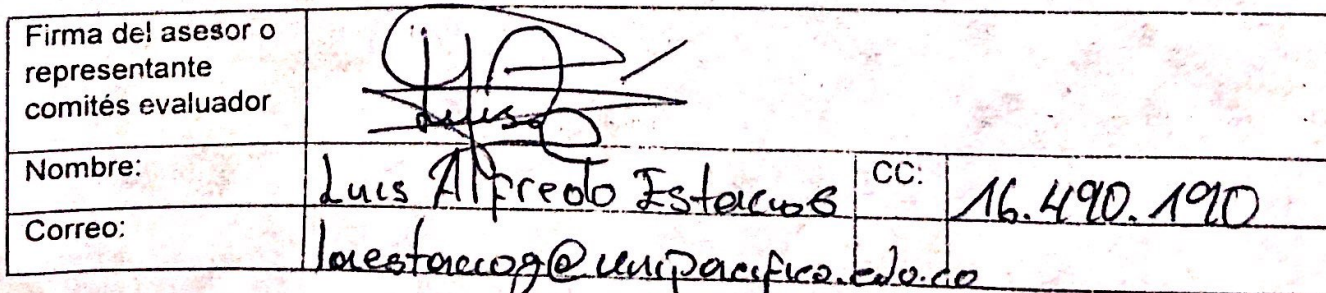 Firma del asesor o
representante
comités evaluador
Nombre: Luis Alfredo Estacio G CC: 16.490.190
Correo: laestaciog@unipacifico.edu.co